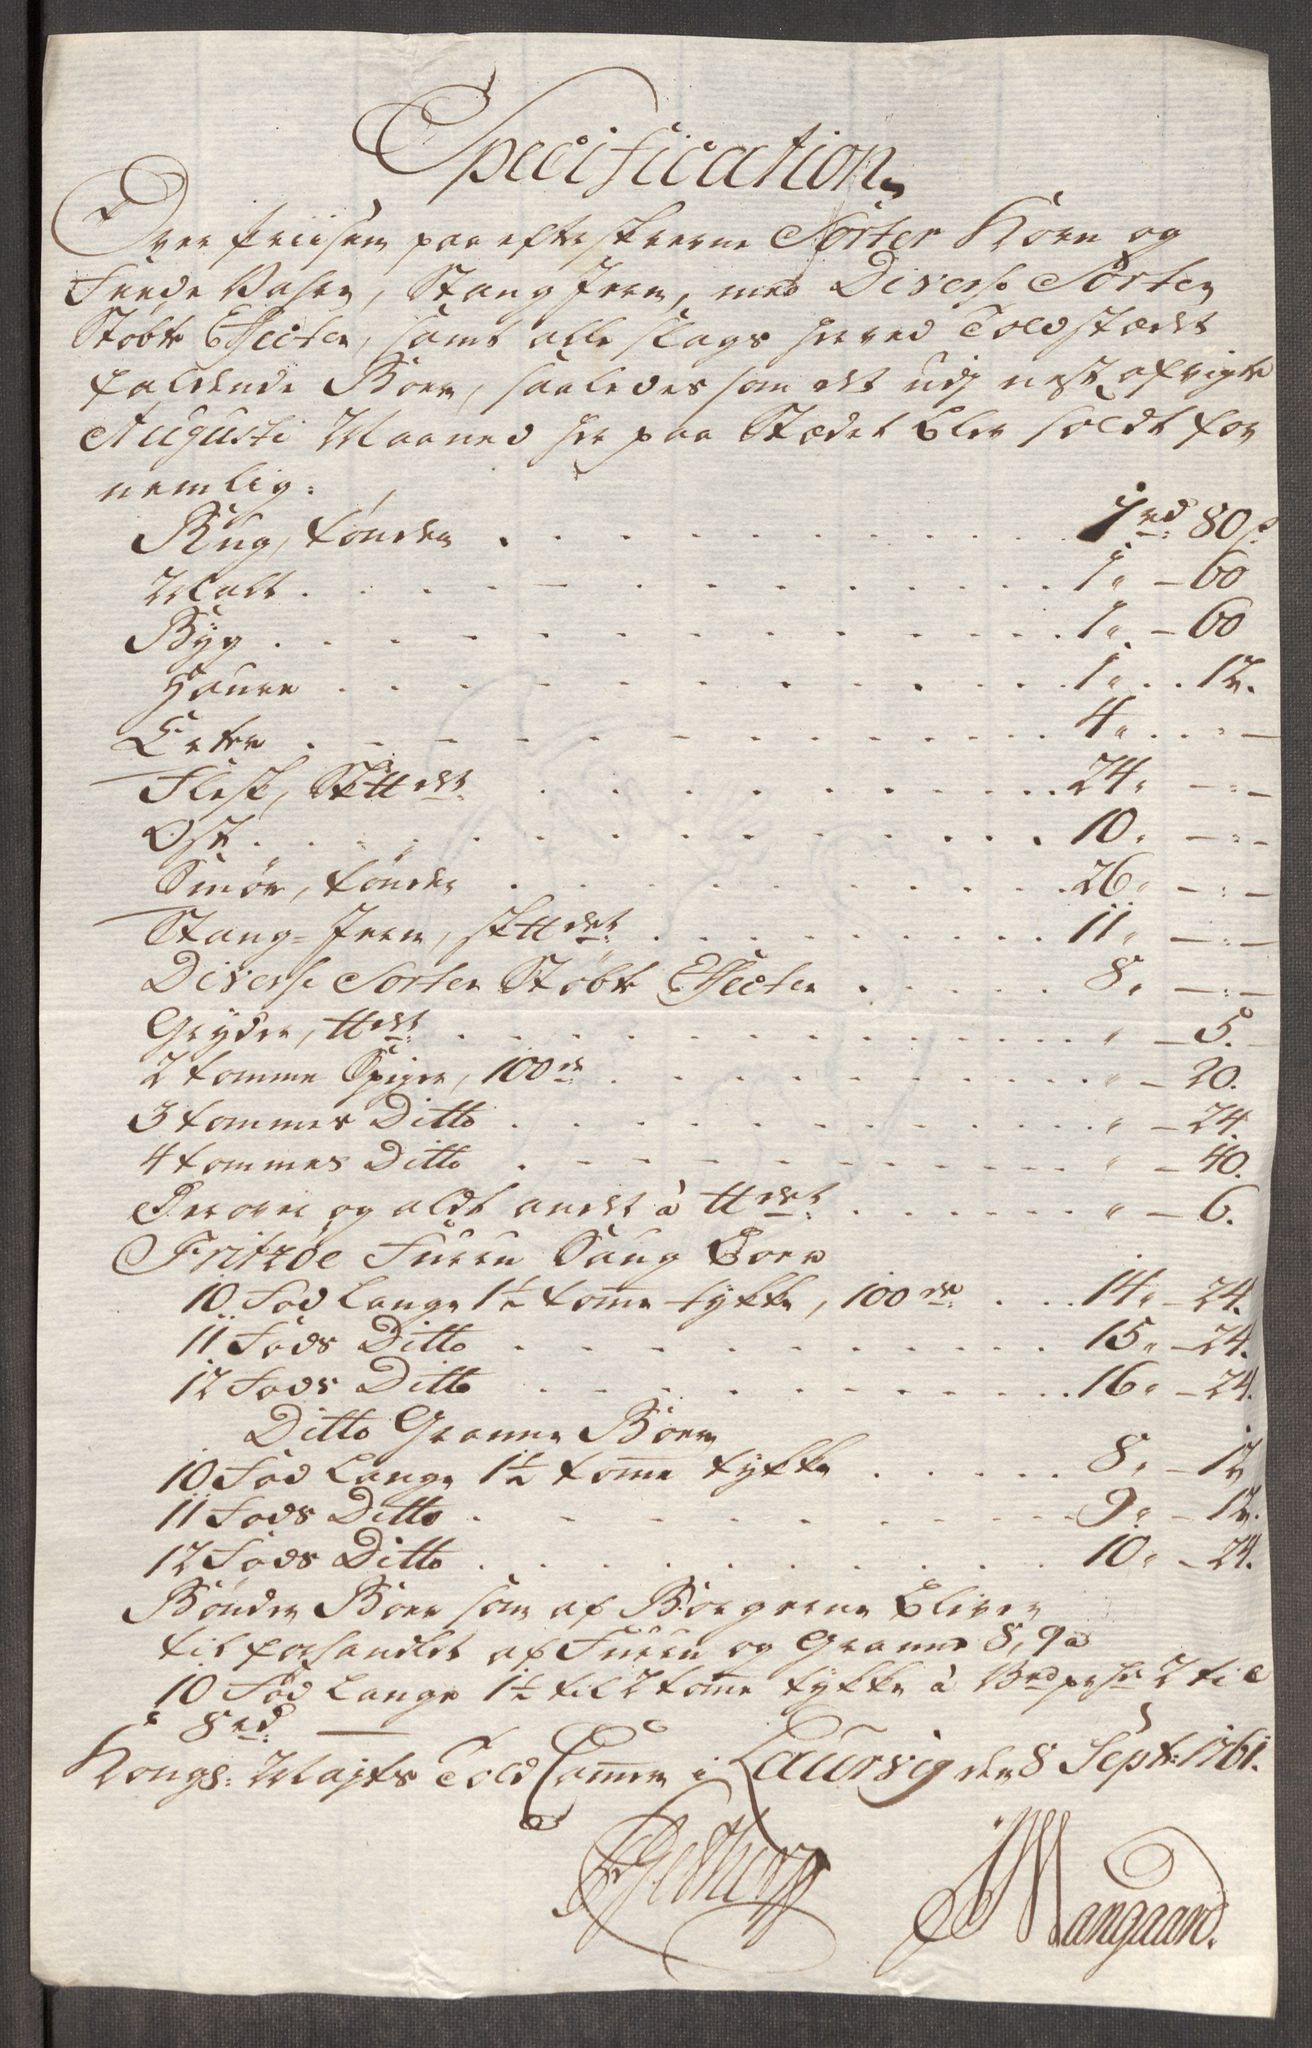 Specification
Over Priisen paa efterskrevne Sorter Korn og
Feede Vahre, Stang Jern, med Diverse Sorter
Støbte Effecter, samt alle slags her ved Toldstædet
faldende Boer, saaledes som det udj nest afvigte
Augusti Maaned her paa Stædet blev soldt for
nemlig:
Rug, tønden . . . 1 rd: 80 s.
Malt . . . 1 „ – 60
Byg . . . 1 „ – 60
Haure . . . 1 „ . . 12.
Erter . . . 4 „ . . –
Flesk, Sk℔det . . . 24 „ – „ –
Ost . . . 10 „ – „ –
Smør, tønden . . . 26 „ – „ –
Stang-Jern, sk℔det . . . 11 „ – „ –
Diverse Sorter Støbte Effecter . . . 8 „ – „ –
Gryder, ℔det . . . „ – 5.
2 tomme Spiger, 100de . . . „ – 20.
3 tommes Ditto . . . „ – 24.
4 tommes Ditto . . . „ – 40.
og aldt andet à ℔det . . . „ – 6.
Fritzöe Furru Saug Boer
10 Fod Lange 1½ tome tykke, 100de . . . 14 „ – 24.
11 Fods Ditto . . . 15 „ – 24.
12 Fods Ditto . . . 16 „ – 24.
Ditto Granne Boer
10 Fod Lange 1½ tome tykke . . . 8 „ – 12
11 Fods Ditto . . . 9 „ – 12.
12 Fods Ditto . . . 10 „ – 24.
Bønder Boer som af Borgerne bliver
tilforhandlet af Furru og Granne 8, 9 à
10 Fod Lange 1½ til 2 tome tykke à 7 til
8 rd:
Kongs: Majts Told Cammer i Laurvig den 8 Sept: 1761.
Mangaard.